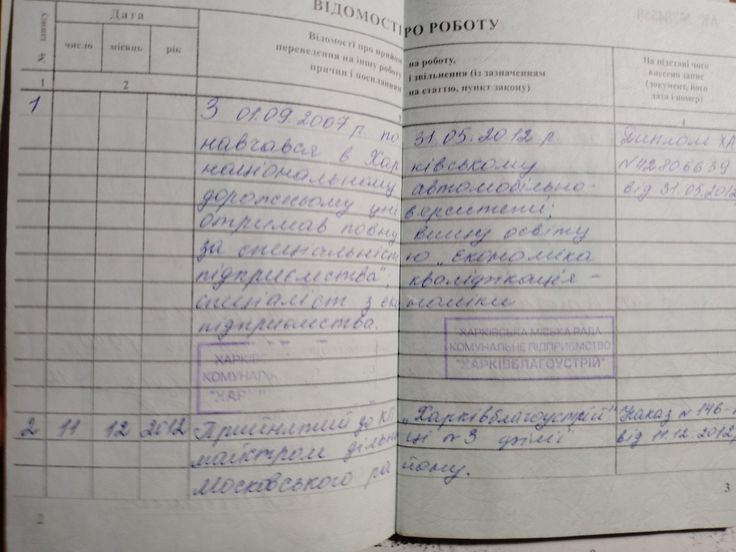 ВІДОМОСТІ ПРО РОБОТУ
№ запису
Дата
число місяць рік
Відомості про прийом на роботу,
переведення на іншу роботу і звільнення (із зазначенням
причин і посиланням на статтю, пункт закону)
На підставі чого
внесено запис
(документ, його
дата і номер)
1 2 4
1 З 01.09.2007 р. по 31.05.2012 р. Диплом ХА
навчався в Харківському №42806639
національному автомобільно- від 31.05.2012
дорожньому університеті;
отримав повну вищу освіту
за спеціальністю „Економіка
підприємства"; кваліфікація -
спеціаліст з економіки
підприємства.
ХАРКІВСЬКА МІСЬКА РАДА
КОМУНАЛЬНЕ ПІДПРИЄМСТВО
"ХАРКІВБЛАГОУСТРІЙ"
ХАРКІВ
КОМУНАЛ
"ХАРК
2 11 12 2012 Прийнятий до КП „Харківблагоустрій" Наказ №146-
майстром дільниці №3 філії від 11.12.2012
Московського району.
2 3